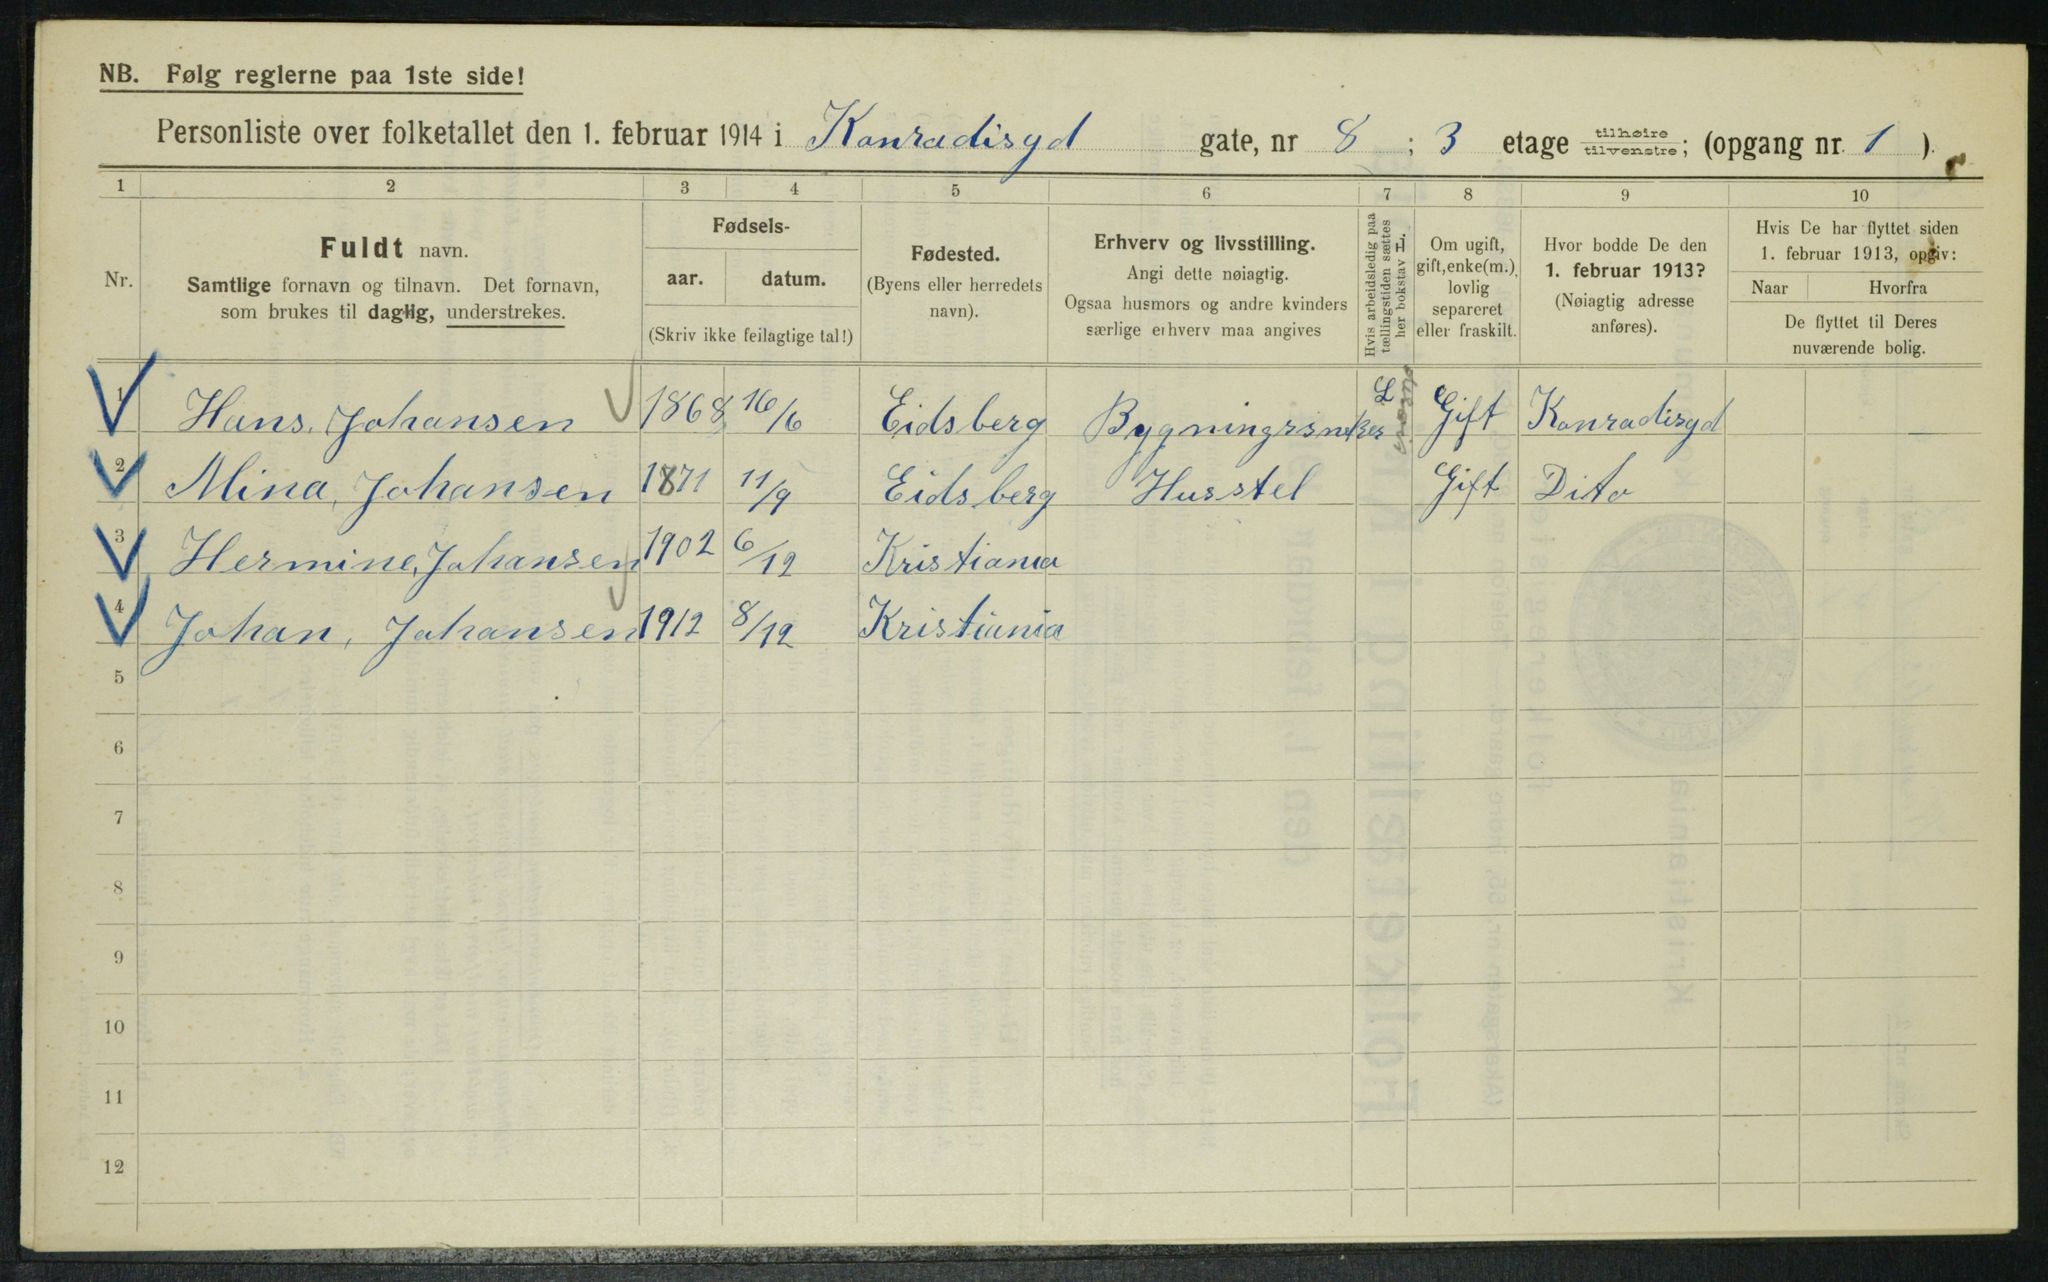 NB. Følg reglerne paa 1ste side!
Personliste over folketallet den 1. februar 1914 i Konradisgd gate, nr 8 ; 3 etage tilhøire tilvenstre; (opgang nr. 1 ).
1 2 3 4 5 6 7 8 9 10
Nr.
Fuldt navn.
Samtlige fornavn og tilnavn. Det fornavn,
som brukes til daglig, understrekes.
Fødsels-
aar. datum.
(Skriv ikke feilagtige tal!)
Fødested.
(Byens eller herredets
navn).
Erhverv og livsstilling.
Angi dette nøiagtig.
Ogsaa husmors og andre kvinders
særlige erhverv maa angives
Hvis arbeidsledig paa
tællingstiden sættes
her bokstav L.
Om ugift,
gift, enke(m.),
lovlig
separeret
eller fraskilt.
Hvor bodde De den
1. februar 1913?
(Nøiagtig adresse
anføres).
Hvis De har flyttet siden
1. februar 1913, opgiv:
Naar Hvorfra
De flyttet til Deres
nuværende bolig.
1 Hans. Johansen 1868 16/6 Eidsberg Bygningssnekker L Gift Konradisgd
2 Mina, Johansen 1871 11/9 Eidsberg Husstel Gift Dito
3 Hermine, Johansen 1902 6/12 Kristiania
4 Johan, Johansen 1912 8/12 Kristiania
5
6
7
8
9
10
11
12